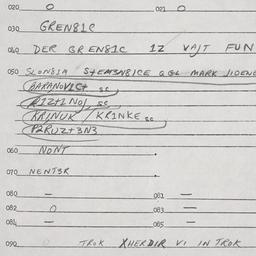 020 O 021 O
030 GREN81C
040 DER GREN81C 1Z VAJT FUN
050 SLON81M STEM3N81CE GGL MARK JIDENG
BARANOV1Ct SC
P1Z+1NOJ SC
KRJNUK / KR1NKE SC
P2RUZ+3N3
060 NONT
070 NENT3R
080 — 081 —
082 O 083 —
084 — 085 —
090 TROK XHERDIR VI IN TROK